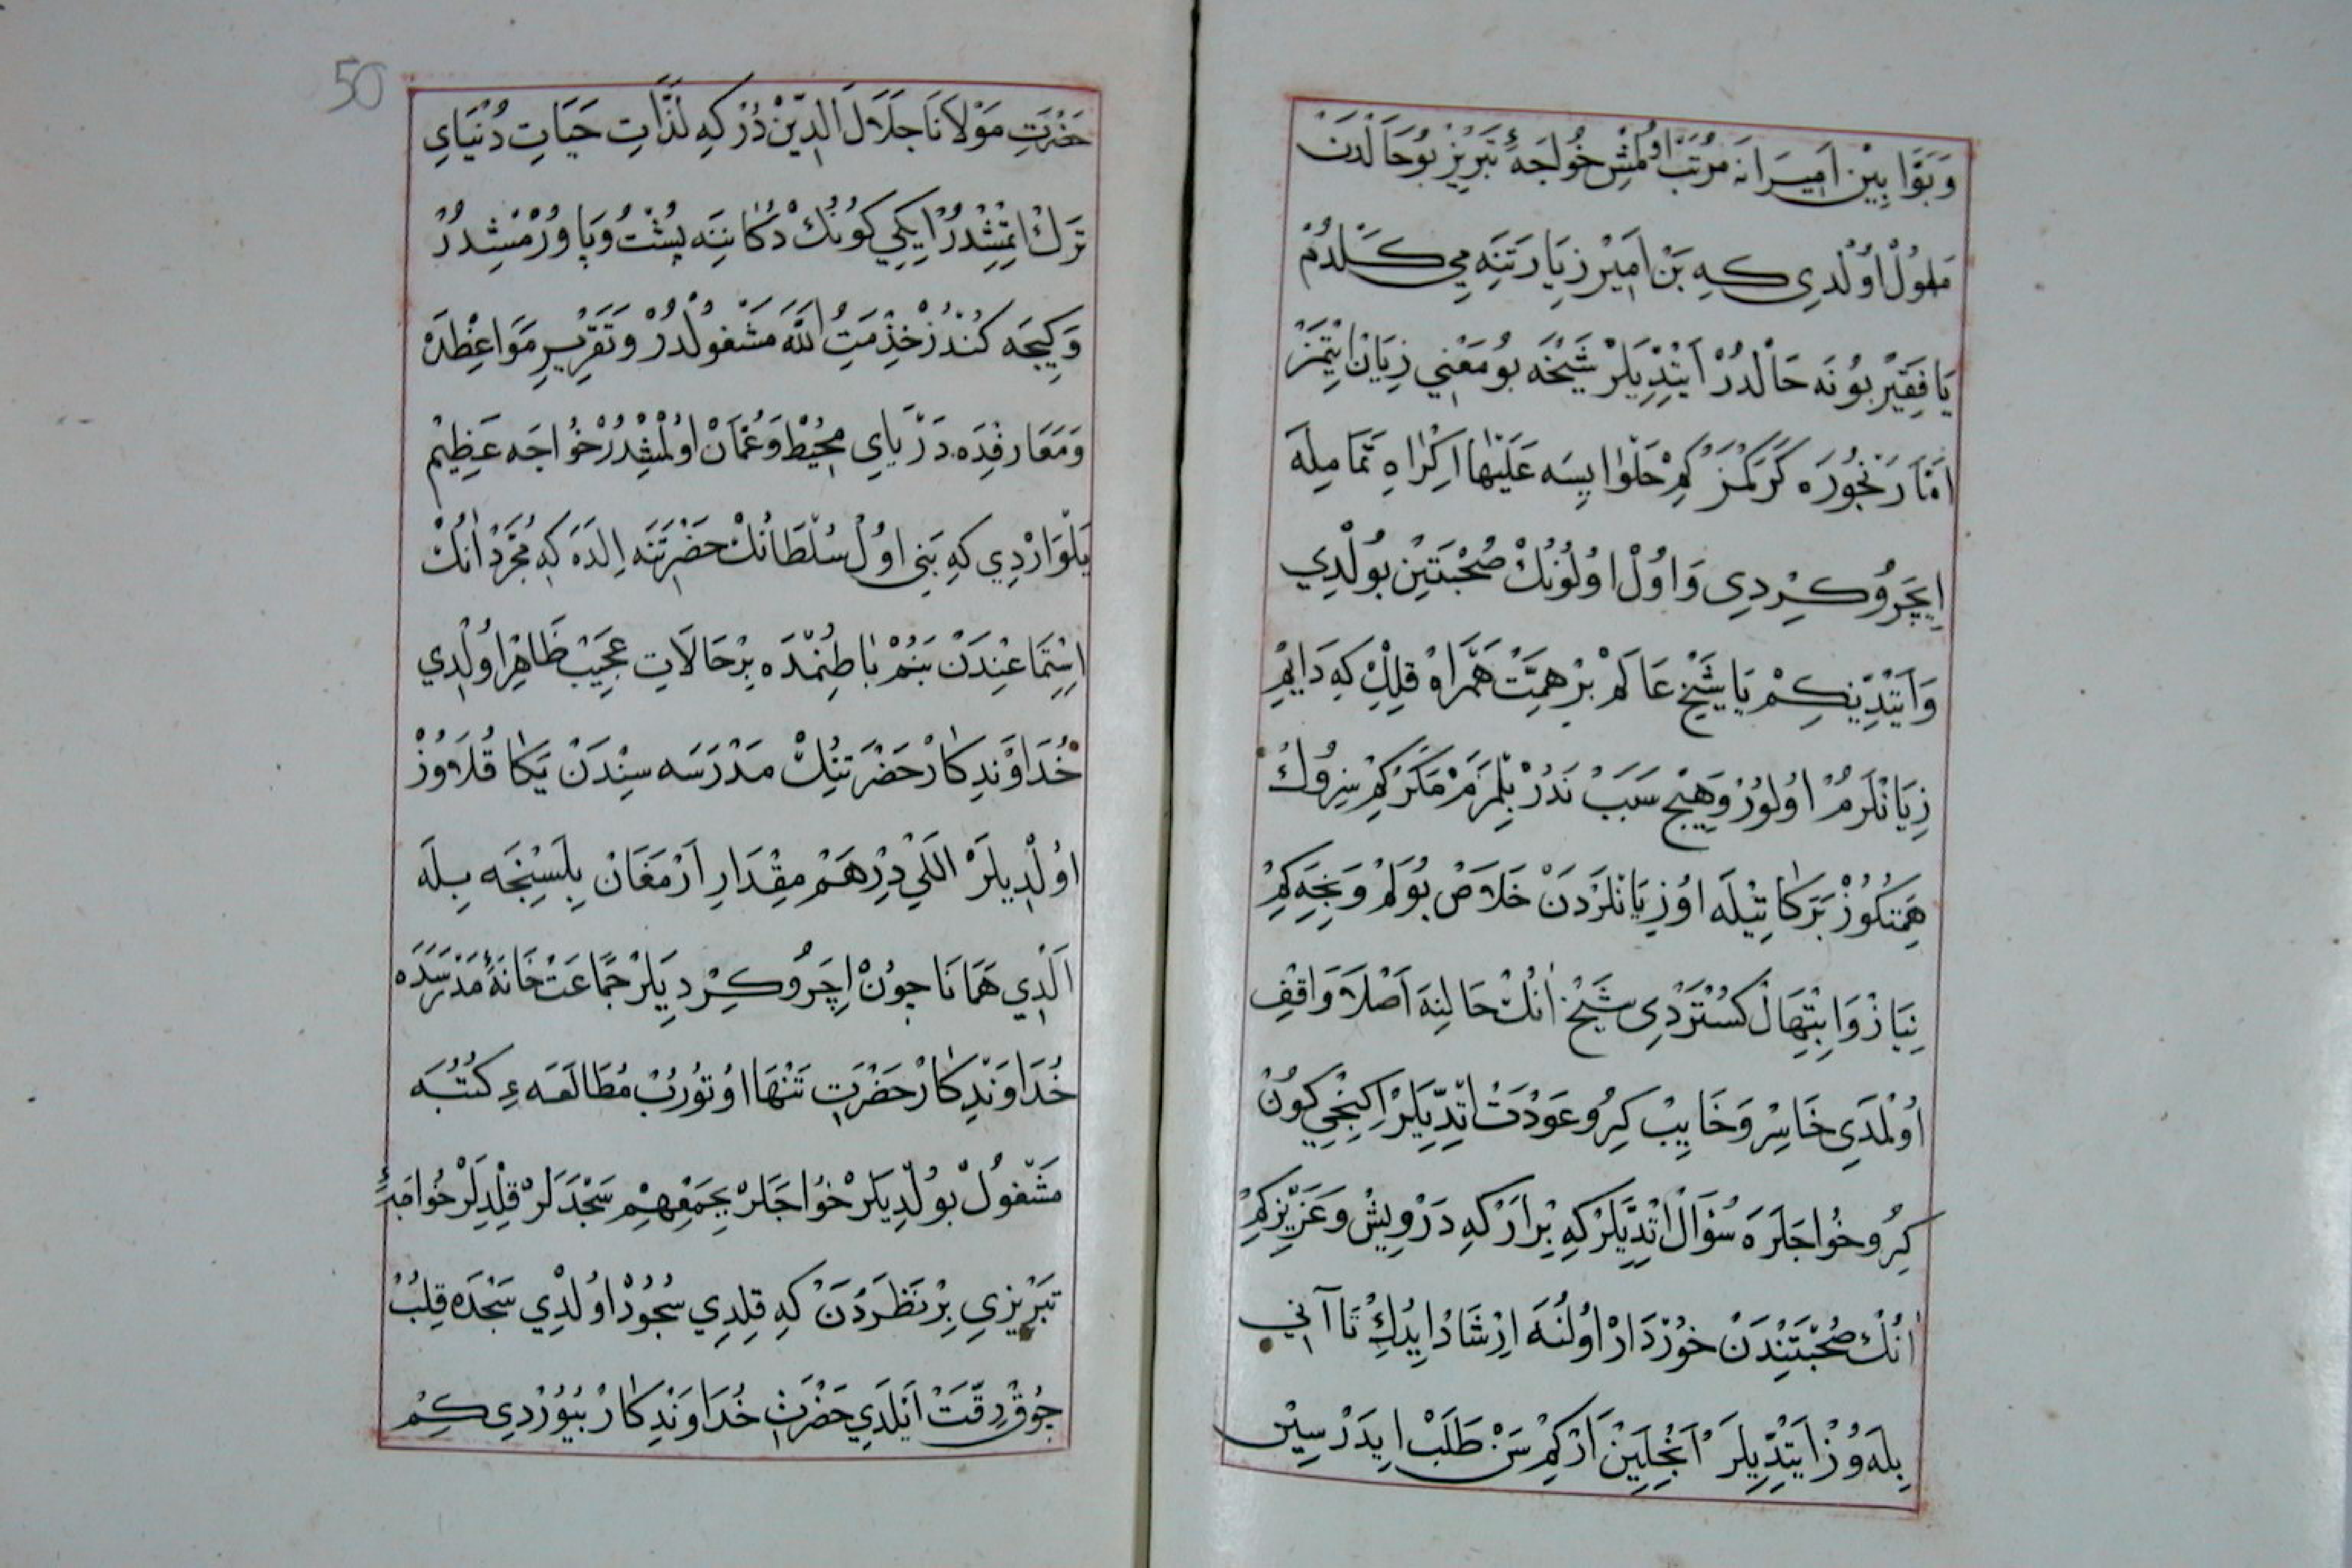 وَبَوَّابِيْنِ اَمِيرَانَه مُرَتَّبْ اوُلْمُشْ خُواجَهٔ تَبْرِيزِ بُوحَالْدَنْ
مَلُولْ اوُلْدِى كِه بَنْ اَمِيرْ زِيَارَتَنَه مِى كَلْدُمْ
يَا فِقَيرْ بوُنَه حَالْدُرْ اَيِتْدِيلَرْ شَيْخَه بوُمَعْنِي زِيَانْ اِيتْمَزْ
اَمَّا رَنْجُورَه كَرَكْمَزْ كِمْ حَلْوَا يِيَسه عَلَيْهَا اِكْرَاهِ تَمَامِلَه
اِيچَرُو كِرْدِى وَاوُلْ اوُلُونُكْ صُحْبَتِيْن بوُلْدِي
وَاَيِتْدِيكِمْ يَا شَيْخِ عَالَمْ بِرْ هِمَّتْ هَمْرَاهْ قِلِلْ كِه دَايِمْ
زِيَانْلَرُمْ اوُلوُرْ وَهِيْچ سَبَبْ نَدُرْ بِلْمَزَمْ مَكَرْ كِمْ سِزُوكْ
هِمَّتكُوزْ بَرَكَاتِيْلَه اوُزِيَانْلَرْدَنْ خَلَاصْ بوُلَمْ وَنِجَه كِمْ
نِيَازْ وَاِبْتِهَالْ كَسْتَرْدِى شَيْخْ اَنُكْ حَالِنَه اَصْلَا وَاقِفِ
اوُلْمَدِى خَاسِرْ وَخَايِبْ كِرُو عَوْدَتْ اِتْدِيلَرْ اِكِنْجِي كوُنْ
كِرُو خُواجَلَرَه سُؤَالْ اِتْدِيلَرْ كِه بِرْ اَرْ كِه دَرْوِيشْ وَعَزِيزْ كِمْ
اَنُكْ صُحْبَتَنْدَنْ خوُرْدَارْ اوُلُنَه اِرْشَادْ اِيدُكْ تَا آنِي
بِلَه وُزْ اَيِتْدِيلَرْ اَنْجِلَيِنْ اَرْ كِمْ سَنْ طَلَبْ اِيدَرْسِيْن
حَضْرَتِ مَوْلَانَا جَلَالَ الدِّيْنْ دُرْ كِه لَذَّاتِ حَيَاتِ دُنْيَايِ
تَرْكْ اِتْمِشْدُرْ اِيكِي كوُنُكْ دُكَانِنَه پُشْتُ وَپَا وُرْمِشْدُرْ
وَكِيجَه كُنْدُزْ خِذْمَتُ اللَّه مَشْغوُلْدُرْ وَتَقْرِيرِ مَوَاعِظْدَه
وَمَعَارِفْدَه دَرْيَايِ مُحِيْطْ وَعُمَّانْ اوُلْمُشْدُرْ خُواجَه عَظِيْم
يَلْوَارْدِي كِه بَنِى اوُلْ سُلْطَانُكْ حَضْرَتَنَه اِلَدَه كِه مُجَرَّدْ اَنُكْ
اِسْتِمَاعِنْدَنْ بَنُمْ بَاطِنُمْدَه بِرْ حَالَاتِ عَجِيَبْ ظَاهِرْ اوُلْدِي
خُدَاوَنْدِكَارْ حَضْرَتِنُكْ مَدْرَسَه سِنْدَنْ يَكَا قُلَاوُزْ
اوُلْدِيلَرْ اَللِّي دِرْهَمْ مِقْدَارِ اَرْمَغَانْ بِلَسِنْجَه بِيلَه
اَلْدِي هَمَانَا چوُنْ اِچَرُو كِرْدِيلَرْ جَمَاعَتْ خَانَهٔ مَدْرَسَدَه
خُدَاوَنْدِكَارْ حَضْرَتِ تَنْهَا اوُتوُرُبْ مُطَالَعَه ءِ كُتُبَه
مَشْغوُلْ بوُلْدِيلَرْ خُواجَلَرْ بِجَمْعِهِمْ سَجْدَلَرْ قِلْدِلَرْ خُواجَهٔ
تَبْرِيزِي بِرْ نَظَرْدَنْ كِه قِلْدِي سُجُودْ اوُلْدِي سَجْدَه قِلُبْ
چُوقْ رِقَّتْ اَيْلَدِي حَضْرَتِ خُدَاوَنْدِكَارْ بُيوُرْدِى كِمْ
50